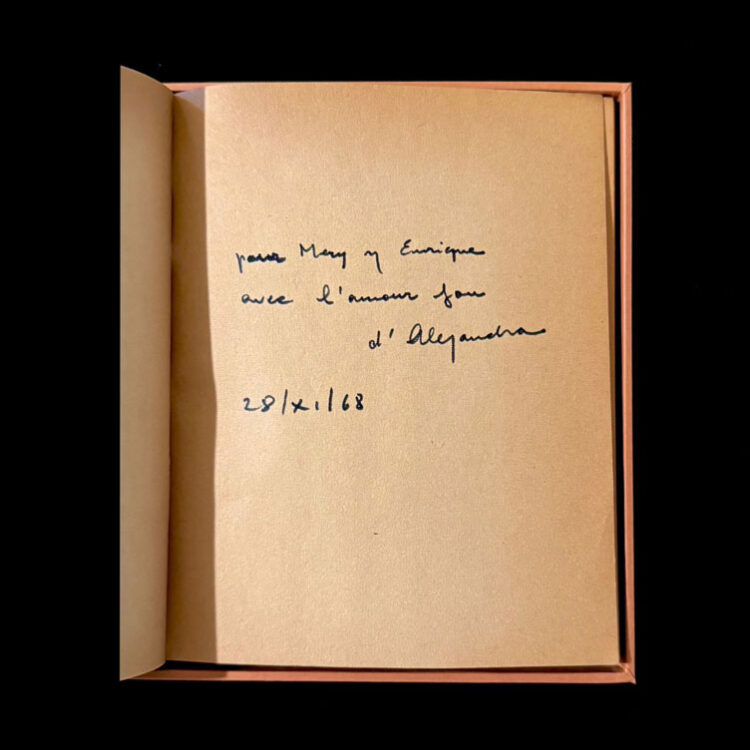 para Mery y Enrique
avec l'amour fou
d'Alejandra
28/XI/68